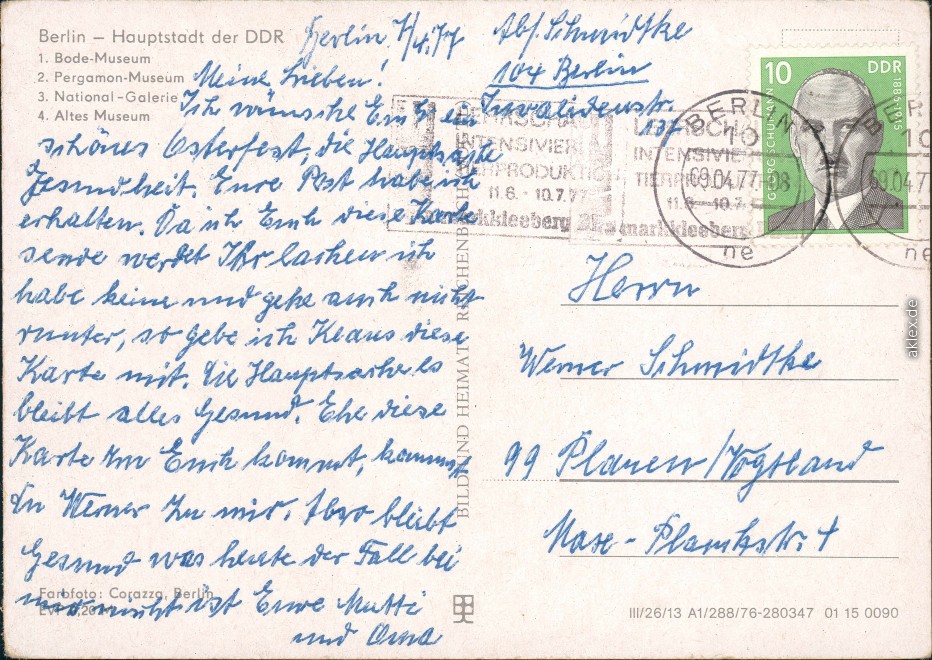 Berlin – Hauptstadt der DDR
1. Bode-Museum
2. Pergamon-Museum
3. National-Galerie
4. Altes Museum
Berlin, 7/4.77
Meine Lieben!
Ich wünsche Euch ein
schönes Osterfest, die Hauptsache
Gesundheit. Eure Post habe ich
erhalten. Da ich Euch diese Karte
sende werdet Ihr lachen ich
habe keine und gehe auch nicht
runter, so gebe ich Klaus diese
Karte mit. Die Hauptsache es
bleibt alles Gesund. Ehe diese
Karte zu Euch kommt, kommst
Du Werner zu mir. Also bleibt
Gesund was heute der Fall bei
mir nicht ist Eure Mutti
und Oma
Farbfoto: Corazza, Berlin
Abs. Schmidtke
104 Berlin
Invalidenstr.
137
LEHRSCHAU
INTENSIVIERTE
TIERPRODUKTION
11.6. - 10.7.77
markkleeberg
INTENSIVIE
TIERPR
11.6 - 10.7.
markkleeberg
BERLIN
10
09.04.77-08
ne
BER
10
09.04.77
ne
10
DDR
GEORG SCHUMANN 1886-1945
Herrn
Werner Schmidtke
99 Plauen/Vogtland
Max-Planckstr. 4
BILD UND HEIMAT REICHENBACH
III/26/13 A1/288/76-280347 01 15 0090
aklex.de